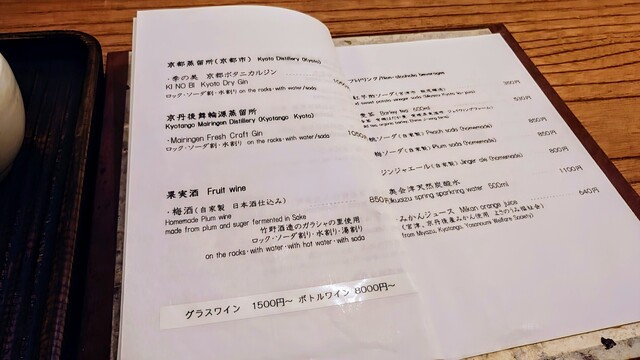 京都蒸留所(京都市) Kyoto Distillery (Kyoto)
・季の美 京都ボタニカルジン
KI NO BI Kyoto Dry Gin
ロック・ソーダ割・水割り on the rocks・with water/soda
京丹後舞輪源蒸留所
Kyotango Mairingen Distillery (Kyotango Kyoto)
・Mairingen Fresh Craft Gin
ロック・ソーダ割・水割り on the rocks・with water/soda
果実酒 Fruit wine
・梅酒(自家製 日本酒仕込み) 850円
Homemade Plum wine
made from plum and suger fermented in Sake
竹野酒造のガラシャの里使用
ロック・ソーダ割り・水割り・湯割り
on the rocks・with water・with hot water・with soda
グラスワイン 1500円〜 ボトルワイン 8000円〜
トドリンク/Non-alcoholic beverages
sweet potato vinegar soda
麦茶 Barley tea 500ml 530円
桃ソーダ(自家製) Peach soda (homemade) 850円
ソーダ(自家製) Plum soda (homemade) 850円
ジンジャエール(自家製) Jinger ale (homemade) 800円
奥会津天然炭酸水 1100円
spring sparkring water 500ml
・みかんジュース Mikan orange juice 640円
(宮津、京丹後産みかん使用 よさのうみ福祉会)
from Miyazu, Kyotango, Yosanoumi Welfare Society)